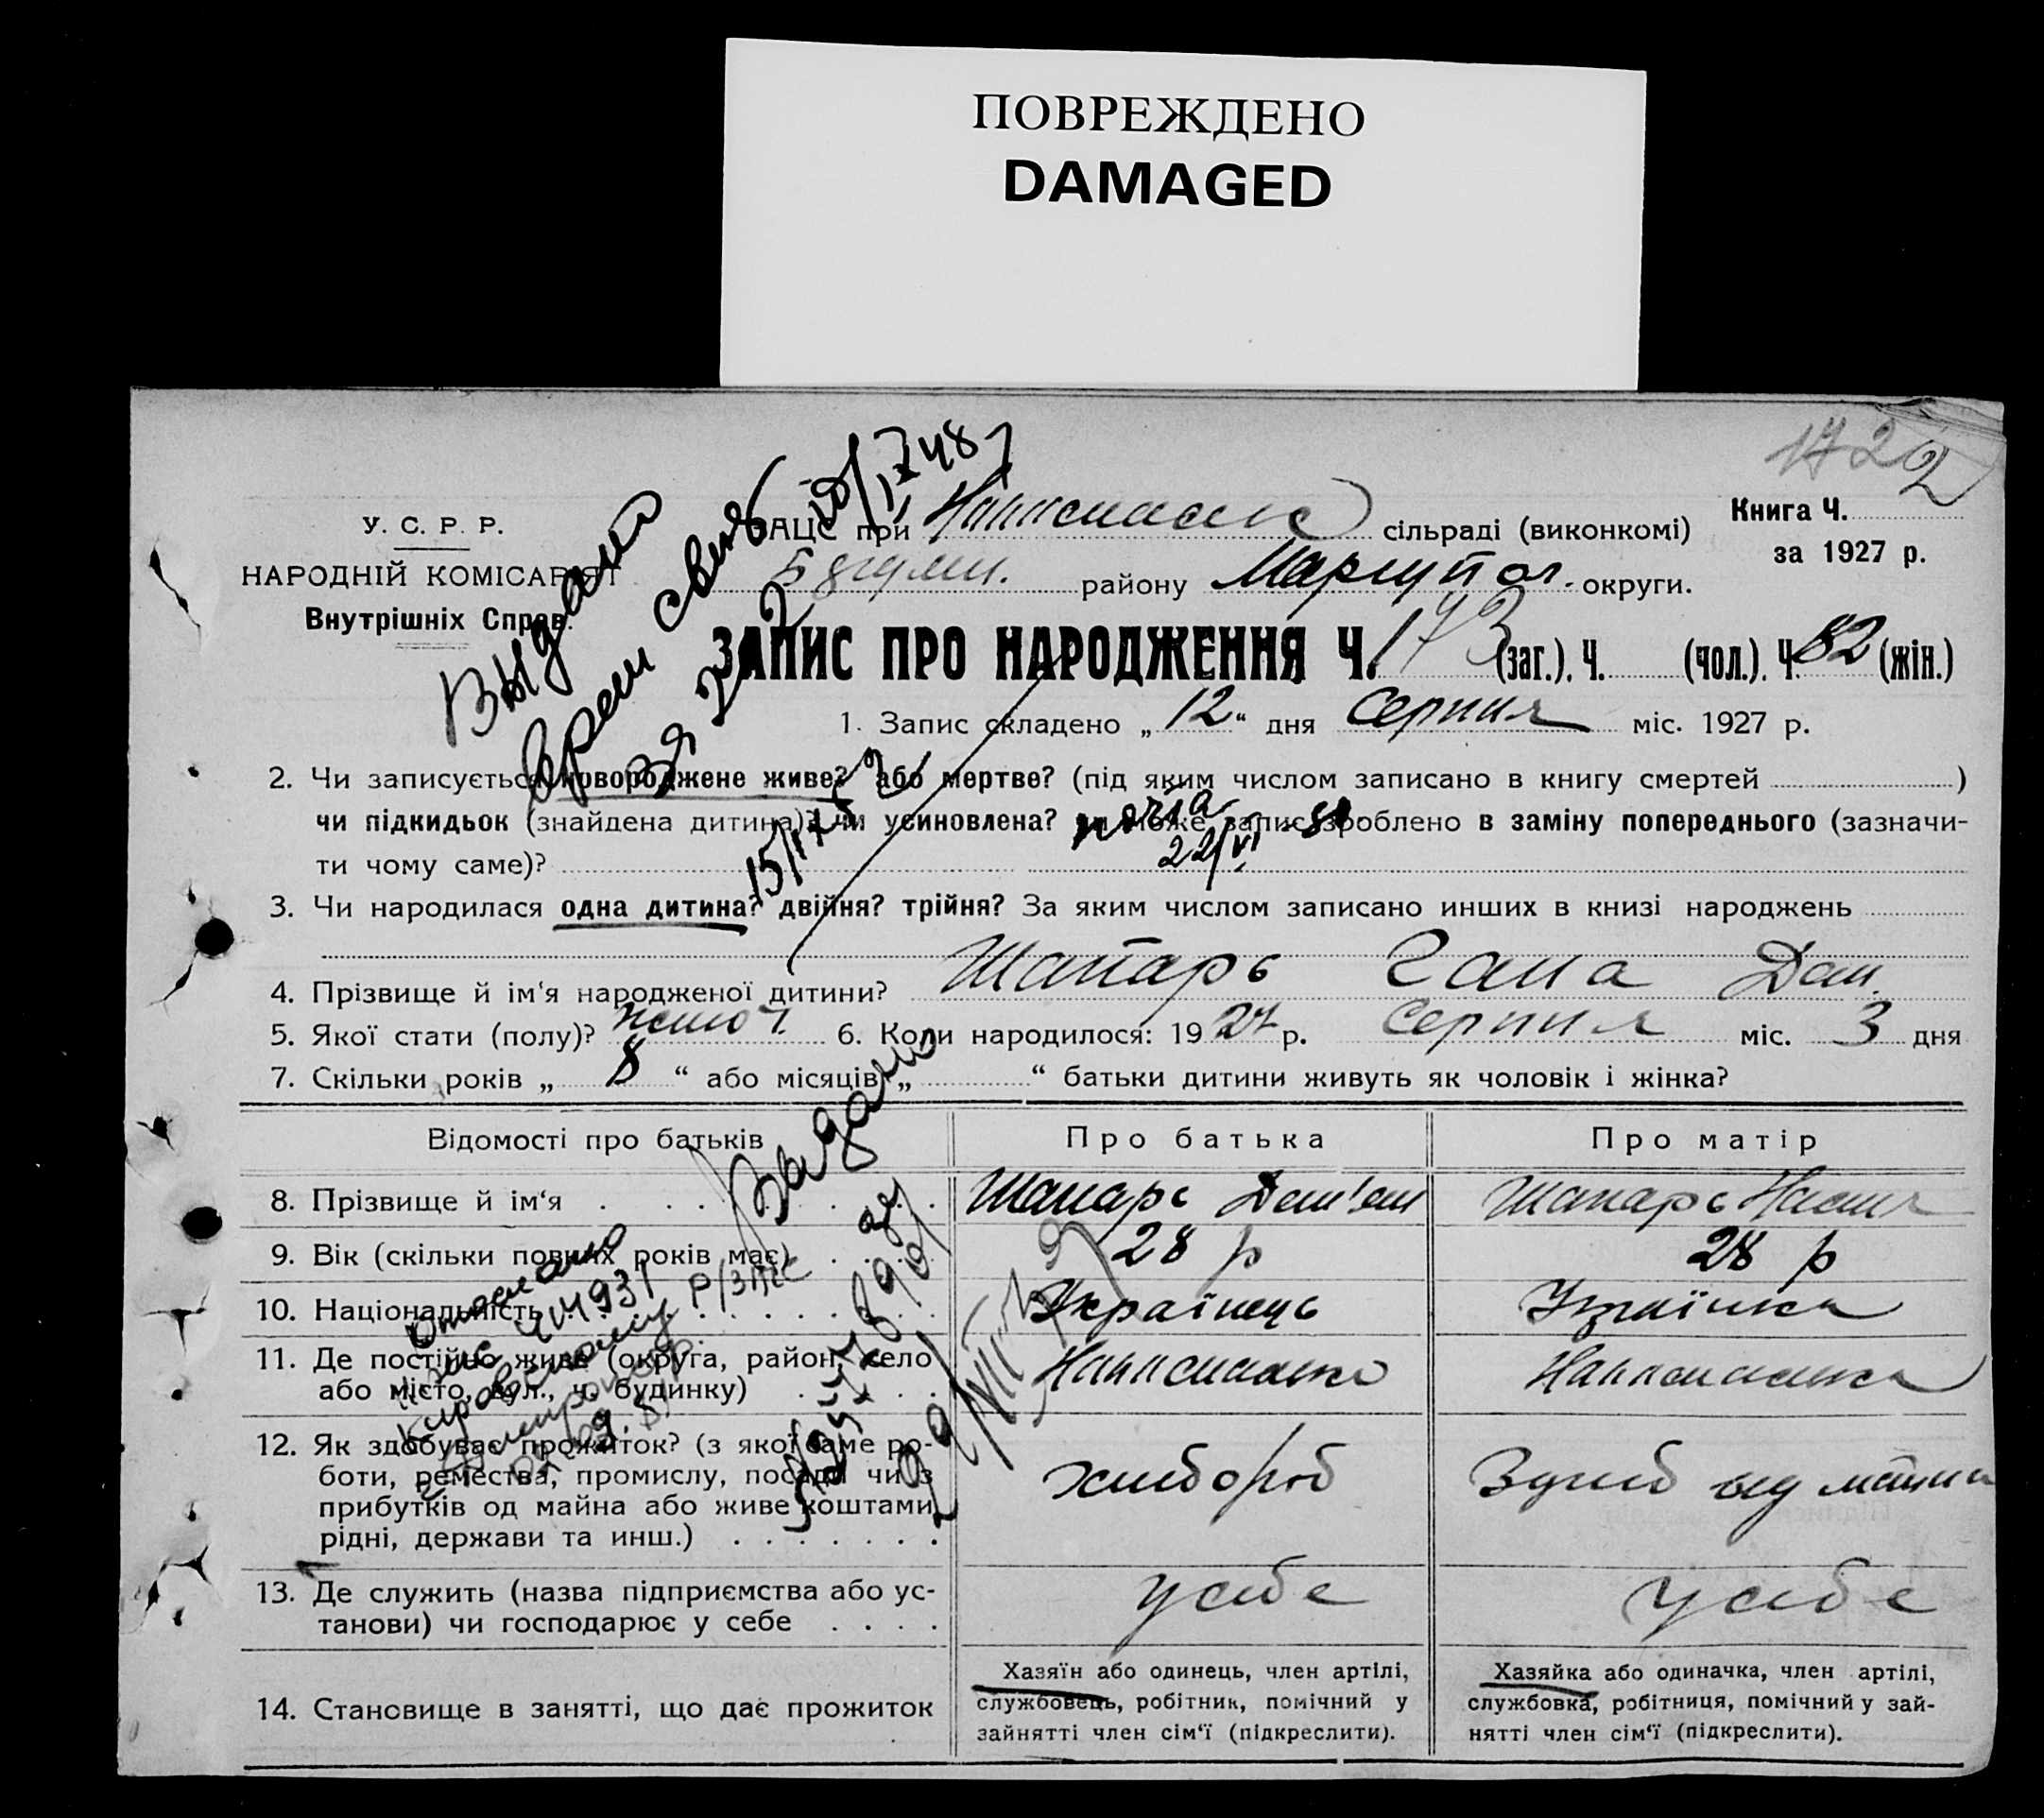 ПОВРЕЖДЕНО
DAMAGED
1722
У. С. Р. Р.
НАРОДНІЙ КОМІСАРІЯТ
Внутрішніх Справ.
ЗАЦС при сільраді (виконкомі)
району Маріупол. округи.
Книга Ч.
за 1927 р.
ЗАПИС ПРО НАРОДЖЕННЯ Ч. 173 (заг.). Ч. (чол.). Ч. 82 (жін.)
1. Запис складено „ 12 “ дня Серпня міс. 1927 р.
2. Чи записується новороджене живе? або мертве? (під яким числом записано в книгу смертей )
чи підкидьок (знайдена дитина)? чи усиновлена? чи може запис зроблено в заміну попереднього (зазначи-
ти чому саме)?
3. Чи народилася одна дитина? двійня? трійня? За яким числом записано инших в книзі народжень
4. Прізвище й ім‘я народженої дитини? Шапарь Гана Дем.
5. Якої стати (полу)? жіноч. 6. Коли народилося: 1927 р. Серпня міс. 3 дня
7. Скільки років „ 8 “ або місяців „ “ батьки дитини живуть як чоловік і жінка?
Відомості про батьків
Про батька
Про матір
8. Прізвище й ім‘я
Шапарь Дем'ян
Шапарь
9. Вік (скільки повних років має)
28 р
28 р
10. Національність
Українець
Українка
11. Де постійно живе (округа, район, село
або місто, вул., ч. будинку)
12. Як здобуває прожиток? (з якої саме ро-
боти, ремества, промислу, посади чи з
прибутків од майна або живе коштами
рідні, держави та инш.)
хлібороб
13. Де служить (назва підприємства або ус-
танови) чи господарює у себе
у себе
у себе
14. Становище в занятті, що дає прожиток
Хазяїн або одинець, член артілі,
службовець, робітник, помічний у
зайнятті член сім‘ї (підкреслити).
Хазяйка або одиначка, член артілі,
службовка, робітниця, помічний у зай-
нятті член сім‘ї (підкреслити).
Выдано
врем свид
Выдано